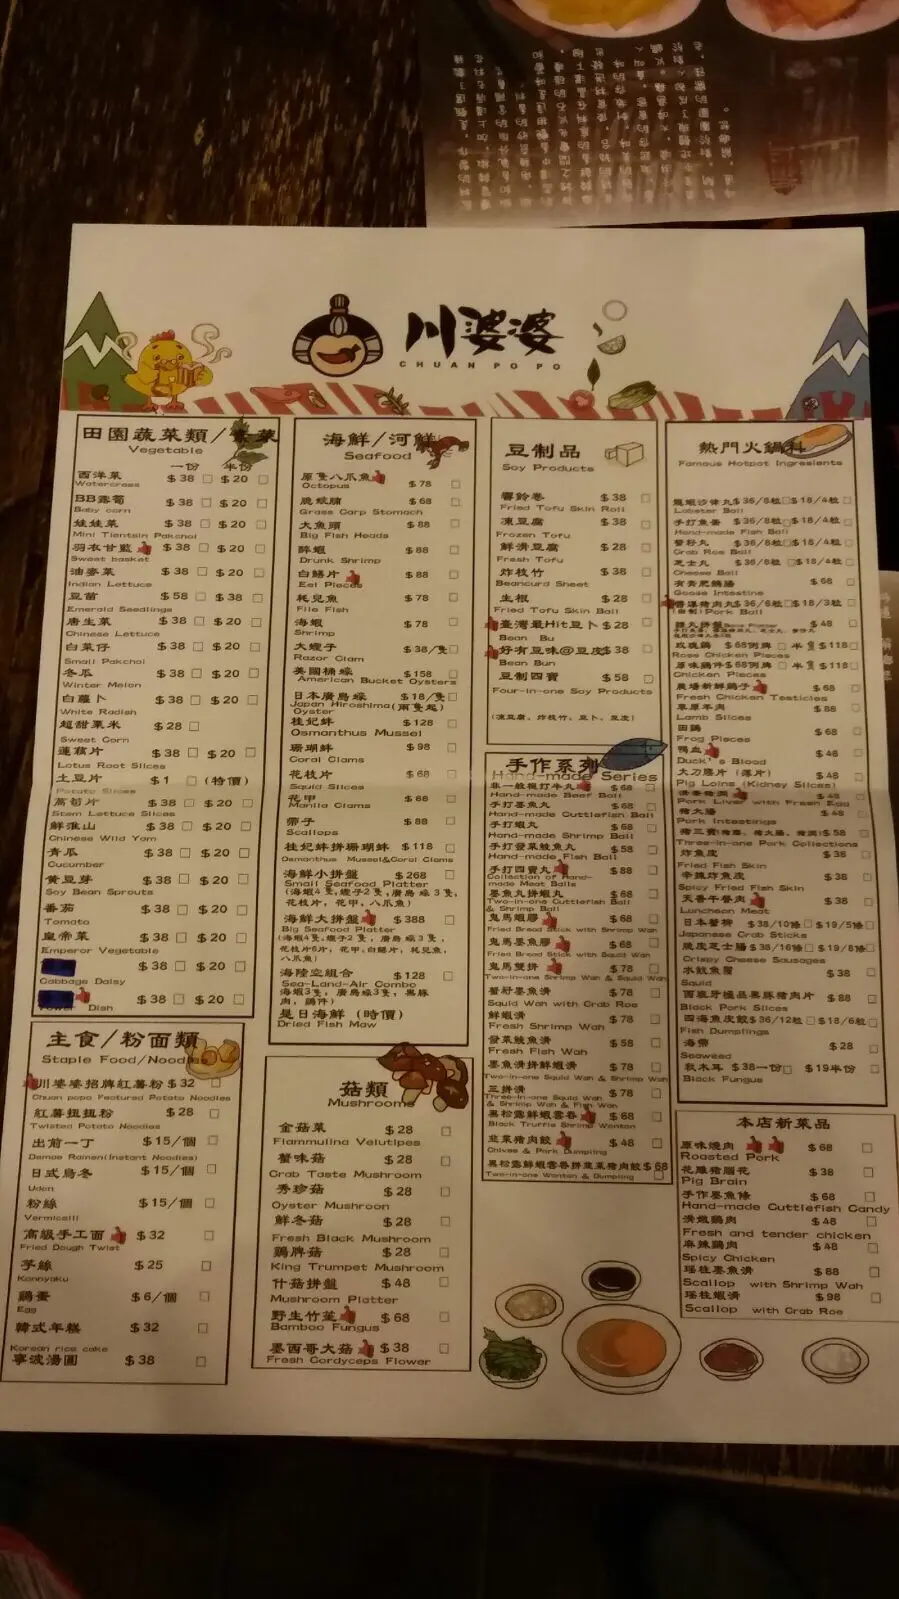 川婆婆
CHUAN PO PO
田園蔬菜類/素菜
Vegetable
一份 半份
西洋菜 $38 □ $20 □
Watercress
BB露荀 $38 □ $20 □
Baby corn
娃娃菜 $38 □ $20 □
Mini Tientsin Pakchoi
羽衣甘藍 $38 □ $20 □
Sweet basket
油麥菜 $38 □ $20 □
Indian Lettuce
豆苗 $58 □ $38 □
Emerald Seedlings
唐生菜 $38 □ $20 □
Chinese Lettuce
白菜仔 $38 □ $20 □
Small Pakchoi
冬瓜 $38 □ $20 □
Winter Melon
白蘿卜 $38 □ $20 □
White Radish
超甜粟米 $28 □
Sweet Corn
蓮藕片 $38 □ $20 □
Lotus Root Slices
土豆片 $1 □ (特價)
Potato Slices
萵筍片 $38 □ $20 □
Stem Lettuce Slices
鮮淮山 $38 □ $20 □
Chinese Wild Yam
青瓜 $38 □ $20 □
Cucumber
黃豆芽 $38 □ $20 □
Soy Bean Sprouts
番茄 $38 □ $20 □
Tomato
皇帝菜 $38 □ $20 □
Emperor Vegetable
$38 □ $20 □
Cabbage Daisy
$38 □ $20 □
Dish
主食/粉面類
Staple Food/Noodle
川婆婆招牌紅薯粉 $32 □
Chuan popo Featured Potato Noodles
紅薯扭扭粉 $28 □
Twisted Potato Noodles
出前一丁 $15/個 □
Demae Ramen(Instant Noodles)
日式烏冬 $15/個 □
Udon
粉絲 $15/個 □
Vermicelli
高級手工面 $32 □
Fried Dough Twist
芋絲 $25 □
Konnyaku
鷄蛋 $6/個 □
Egg
韓式年糕 $32 □
Korean rice cake
寧波湯圓 $38 □
海鮮/河鮮
Seafood
原隻八爪魚 $78 □
Octopus
脆鯇腩 $68 □
Grass Carp Stomach
大魚頭 $88 □
Big Fish Heads
醉蝦 $88 □
Drunk Shrimp
白鱔片 $88 □
Eel Pieces
耗兒魚 $78 □
File Fish
海蝦 $78 □
Shrimp
大蟶子 $38/隻□
Razor Clam
美國桶蠔 $158 □
American Bucket Oysters
日本廣島蠔 $18/隻□
Japan Hiroshima(兩隻起)
Oyster
桂妃蚌 $128 □
Osmanthus Mussel
珊瑚蚌 $98 □
Coral Clams
花枝片 $68 □
Squid Slices
花甲 $68 □
Manila Clams
帶子 $88 □
Scallops
桂妃蚌拼珊瑚蚌 $118 □
Osmanthus Mussel&Coral Clams
海鮮小拼盤 $268 □
Small Seafood Platter
(海蝦4隻,蟶子2隻,廣島蠔3隻,
花枝片,花甲,八爪魚)
海鮮大拼盤 $388 □
Big Seafood Platter
(海蝦4隻,蟶子2隻,廣島蠔3隻,
花枝片6片,花甲,白鱔片,耗兒魚,
八爪魚)
海陸空組合 $128 □
Sea-Land-Air Combo
海蝦3隻,廣島蠔3隻,黑豚
肉,鷄件)
是日海鮮 (時價)
Dried Fish Maw
菇類
Mushrooms
金菇菜 $28 □
Flammulina Velutipes
蟹味菇 $28 □
Crab Taste Mushroom
秀珍菇 $28 □
Oyster Mushroon
鮮冬菇 $28 □
Fresh Black Mushroom
鷄髀菇 $28 □
King Trumpet Mushroom
什菇拼盤 $48 □
Mushroom Platter
野生竹笙 $68 □
Bamboo Fungus
墨西哥大菇 $38 □
Fresh Cordyceps Flower
豆制品
Soy Products
響鈴卷 $38 □
Fried Tofu Skin Roll
凍豆腐 $38 □
Frozen Tofu
鮮滑豆腐 $28 □
Fresh Tofu
炸枝竹 $38 □
Beancurd Sheet
生根 $28 □
Fried Tofu Skin Ball
臺灣最Hit豆卜 $28 □
Bean Bu
好有豆味@豆皮 $38 □
Bean Bun
豆制四寶 $58 □
Four-in-one Soy Products
(凍豆腐,炸枝竹,豆卜,豆皮)
手作系列
Hand-made Series
非一般概打牛丸 $68 □
Hand-made Beef Ball
手打墨魚丸 $68 □
Hand-made Cuttlefish Ball
手打蝦丸 $68 □
Hand-made Shrimp Ball
手打發菜鯪魚丸 $58 □
Hand-made Fish Ball
手打四寶丸 $88 □
Collection of Hand-
made Meat Balls
墨魚丸拼蝦丸 $68 □
Two-in-one Cuttlefish Ball
& Shrimp Ball
鬼馬蝦膠 $68 □
Fried Bread Stick with Shrimp Wah
鬼馬墨魚膠 $68 □
Fried Bread Stick with Squid Wah
鬼馬雙拼 $78 □
Two-in-one Shrimp Wah & Squid Wah
蟹籽墨魚滑 $78 □
Squid Wah with Crab Roe
鮮蝦滑 $78 □
Fresh Shrimp Wah
發菜鯪魚滑 $58 □
Fresh Fish Wah
墨魚滑拼鮮蝦滑 $78 □
Two-in-one Squid Wah & Shrimp Wah
三拼滑 $78 □
Three-in-one Squid Wah
& Shrimp Wah & Fish Wan
黑松露鮮蝦雲吞 $68 □
Black Truffle Shrimp Wonton
韭菜豬肉餃 $48 □
Chives & Pork Dumpling
黑松露鮮蝦雲吞拼韭菜豬肉餃 $68
Two-in-one Wonton & Dumpling □
熱門火鍋料
Famous Hotpot Ingresients
龍蝦沙律丸 $36/8粒□$18/4粒□
Lobster Ball
手打魚蛋 $36/8粒□$18/4粒□
Hand-made Fish Ball
蟹籽丸 $36/8粒□$18/4粒□
Crab Roe Ball
芝士丸 $36/8粒□$18/4粒□
Cheese Ball
有膏肥鵝腸 $68 □
Goose Intestine
醬爆豬肉丸$36/6粒□$18/3粒□
(自制) Pork Ball
雜丸拼盤 $48 □
玫瑰鷄 $68例牌 □ 半隻$118□
Rose Chicken Pieces
原味鷄件$68例牌 □ 半隻$118□
Chicken Pieces
農場新鮮鷄子 $68 □
Fresh Chicken Testicles
草原羊肉 $88 □
Lamb Slices
田鷄 $68 □
Frog Pieces
鴨血 $48 □
Duck's Blood
大刀腰片 (薄片) $48 □
Pig Loins (Kidney Slices)
滑蛋豬潤 $48 □
Pork Liver with Fresh Egg
豬大腸 $48 □
Pork Intestings
豬三寶(豬腰,豬大腸,豬潤)$58 □
Three-in-one Pork Collections
炸魚皮 $38 □
Fried Fish Skin
辛辣炸魚皮 $38 □
Spicy Fried Fish Skin
天香午餐肉 $38 □
Luncheon Meat
日本蟹柳 $38/10條□ $19/5條□
Japanese Crab Sticks
脆皮芝士腸 $38/16條□ $19/8條□
Crispy Cheese Sausages
水魷魚鬚 $38 □
Squid
西班牙極品黑豚豬肉片 $88 □
Black Pork Slices
四海魚皮餃$36/12粒□$18/6粒□
Fish Dumplings
海帶 $28 □
Seaweed
秋木耳 $38一份□ $19半份 □
Black Fungus
本店新菜品
原味燒肉 $68 □
Roasted Pork
花雕豬腦花 $38 □
Pig Brain
手作墨魚條 $68 □
Hand-made Cuttlefish Candy
滑嫩鷄肉 $48 □
Fresh and tender chicken
麻辣鷄肉 $48 □
Spicy Chicken
瑤柱墨魚滑 $88 □
Scallop with Shrimp Wah
瑤柱蝦滑 $98 □
Scallop with Crab Roe